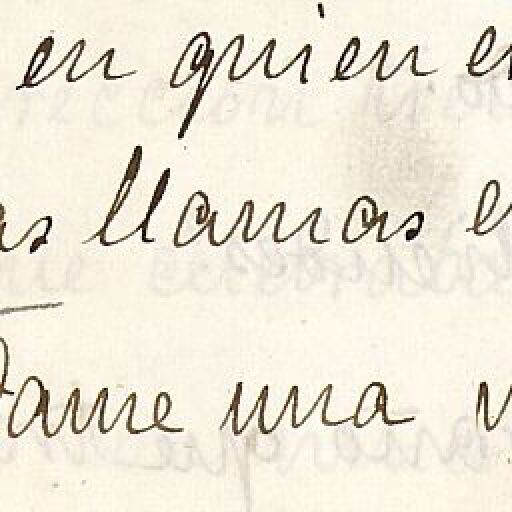 en quien e
as llamas e
Dame una v